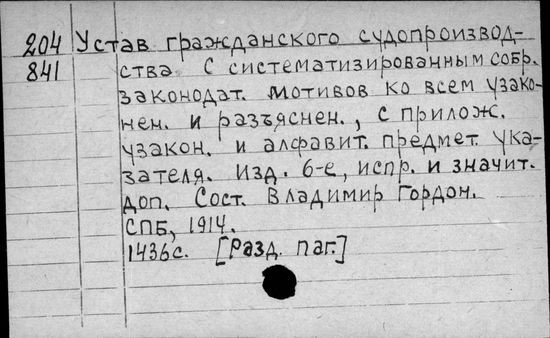 204 Устав гражданского судопроизвод-
841 ства. С систематизированным собр.
законодат. мотивов ко всем узако-
нен. и разъяснен., с прилож.
узакон. и алфавит. предмет. ука-
зателя. Изд. 6-е, испр. и значит.
доп. Сост. Владимир Гордон.
СПБ, 1914.
1436с. [Разд. паг.]